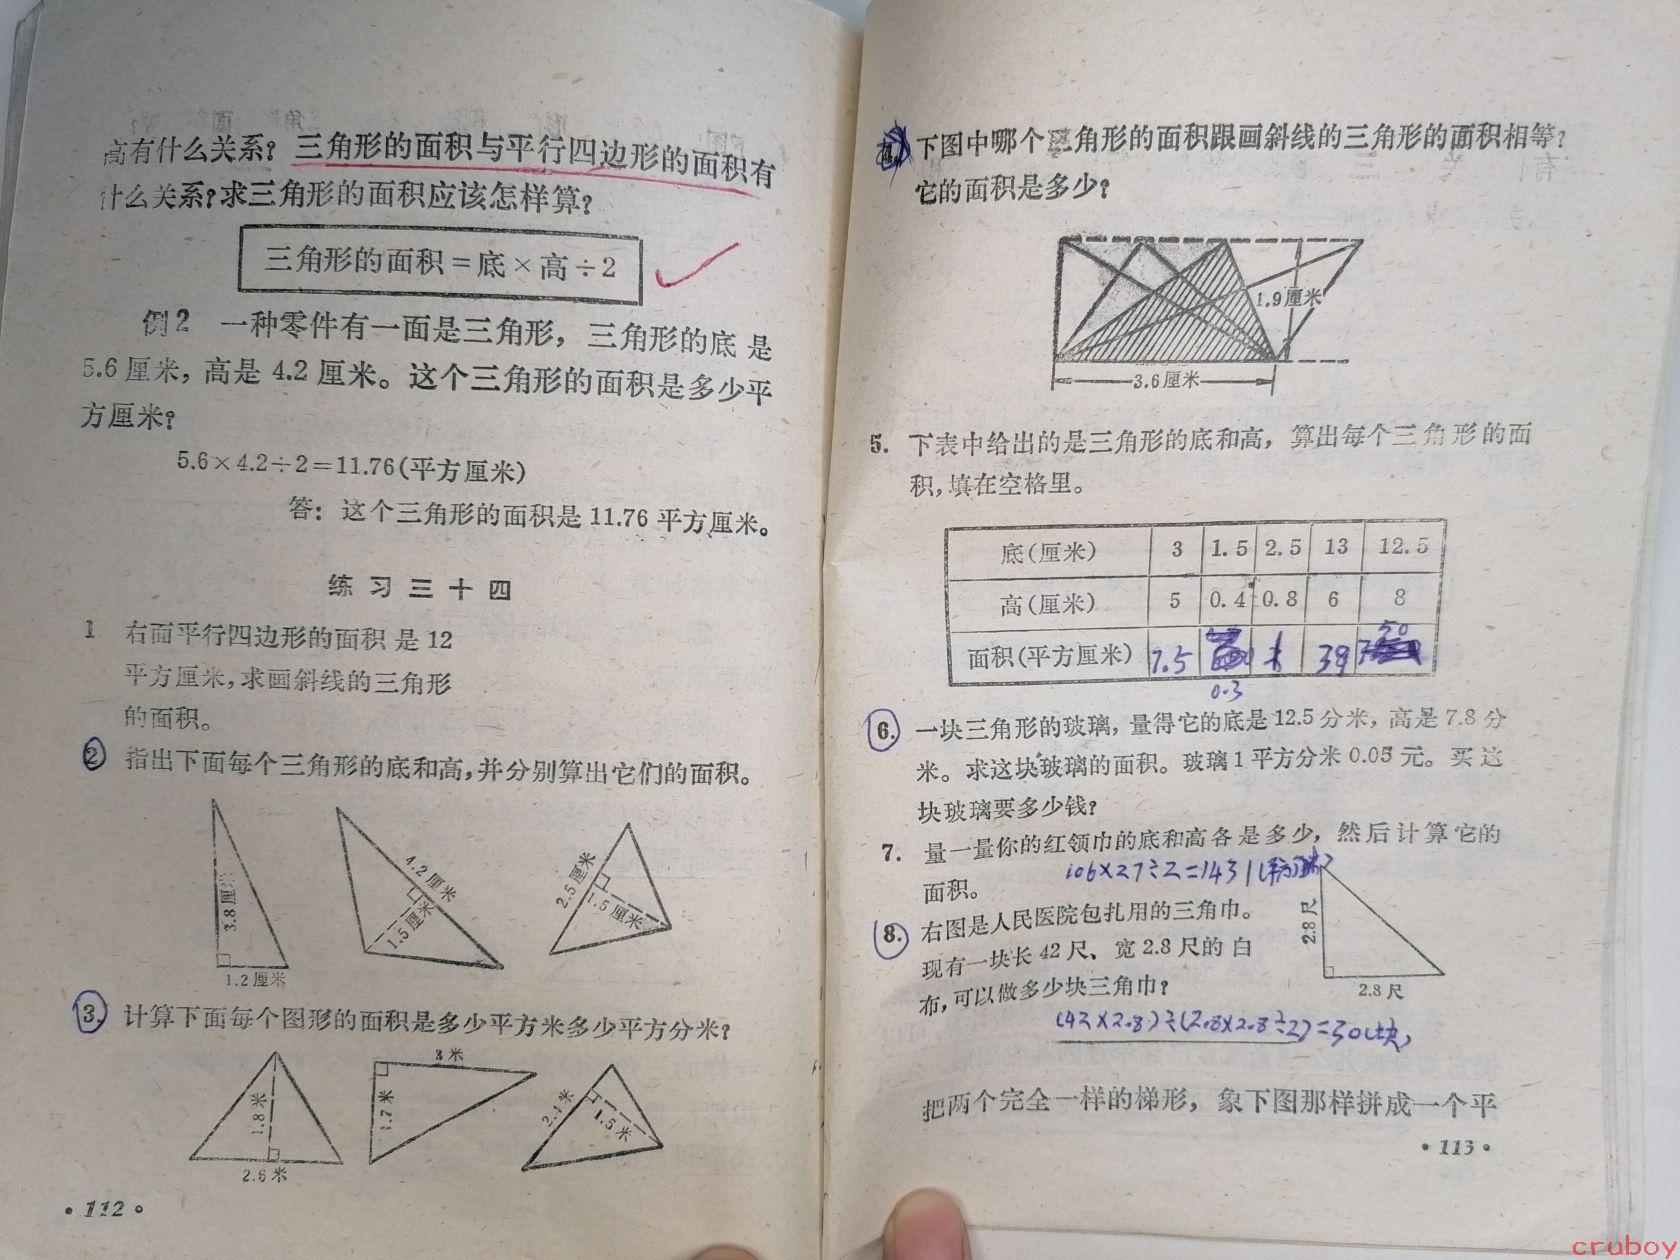 高有什么关系？三角形的面积与平行四边形的面积有
什么关系？求三角形的面积应该怎样算？
三角形的面积=底×高÷2
例2 一种零件有一面是三角形，三角形的底是
5.6厘米，高是4.2厘米。这个三角形的面积是多少平
方厘米？
5.6×4.2÷2=11.76(平方厘米)
答：这个三角形的面积是11.76平方厘米。
练习三十四
1 右面平行四边形的面积是12
平方厘米，求画斜线的三角形
的面积。
2 指出下面每个三角形的底和高，并分别算出它们的面积。
3.8厘米
1.2厘米
4.2厘米
1.5厘米
2.5厘米
1.5厘米
3. 计算下面每个图形的面积是多少平方米多少平方分米？
1.8米
2.6米
3米
1.7米
1.5米
·112·
下图中哪个三角形的面积跟画斜线的三角形的面积相等？
它的面积是多少？
1.9厘米
3.6厘米
5. 下表中给出的是三角形的底和高，算出每个三角形的面
积，填在空格里。
底(厘米) 3 1.5 2.5 13 12.5
高(厘米) 5 0.4 0.8 6 8
面积(平方厘米) 7.5 1 39 50
0.3
6. 一块三角形的玻璃，量得它的底是12.5分米，高是7.8分
米。求这块玻璃的面积。玻璃1平方分米0.05元。买这
块玻璃要多少钱？
7. 量一量你的红领巾的底和高各是多少，然后计算它的
面积。
106×27÷2=1431
8. 右图是人民医院包扎用的三角巾。
现有一块长42尺、宽2.8尺的白
布，可以做多少块三角巾？
2.8尺
2.8尺
(42×2.8)÷(2.8×2.8÷2)=30(块)
把两个完全一样的梯形，象下图那样拼成一个平
·113·
cruboy